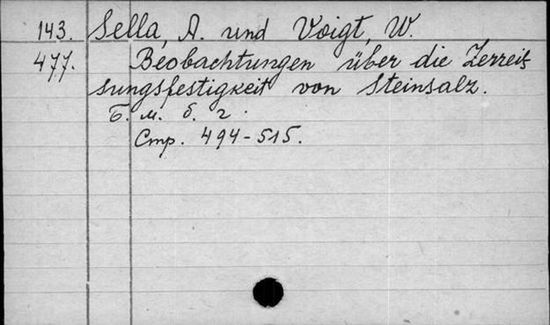 143. Sella, A. und Voigt, W.
477. Beobachtungen über die Zerreis
sungsfestigkeit von Steinsalz.
Б. м. б. г.
Стр. 494-515.